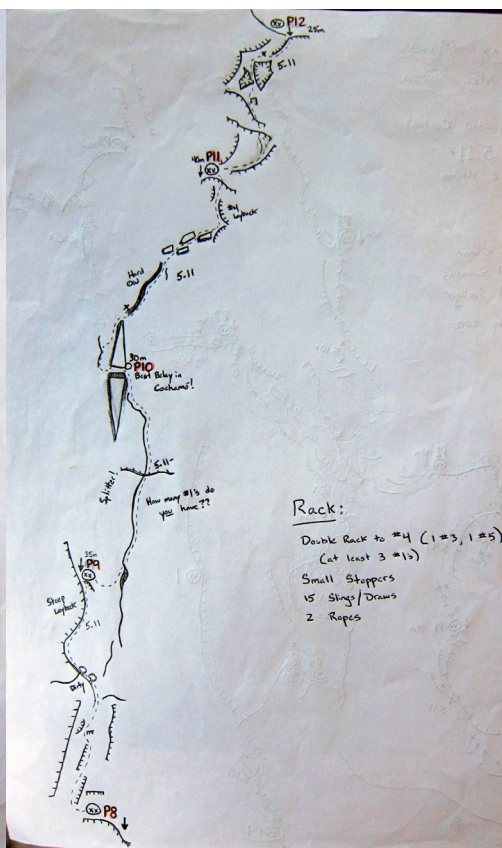 P12
25m
5.11
40m P11
#4
Layback
Hard
OW
5.11
30m
P10
Best Belay in
Cochamó!
5.11-
Splitter!
How many #1's do
you have??
35m
P9
Steep
Layback
5.11
Dirty
P8
Rack:
Double Rack to #4 (1 #3, 1 #5)
(at least 3 #1's)
Small Stoppers
15 Slings/Draws
2 Ropes